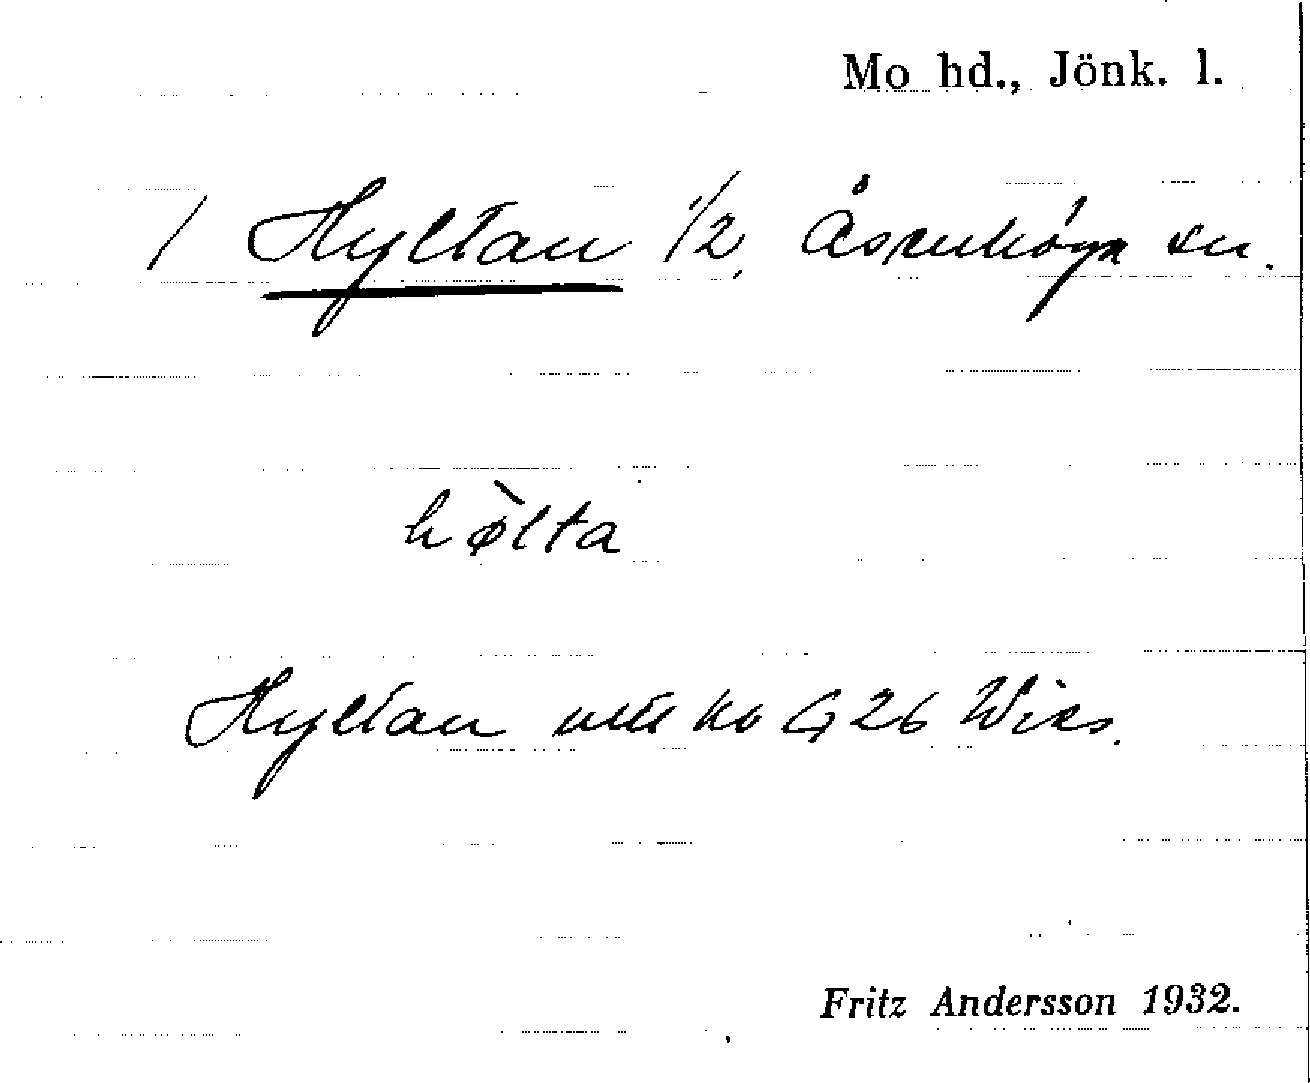 Mo hd., Jönk. l.
/ Hyltan 1/2, Åsenhöga sn.
hø̀lta
Hyltan utt kv G 26 Wies.
Fritz Andersson 1932.